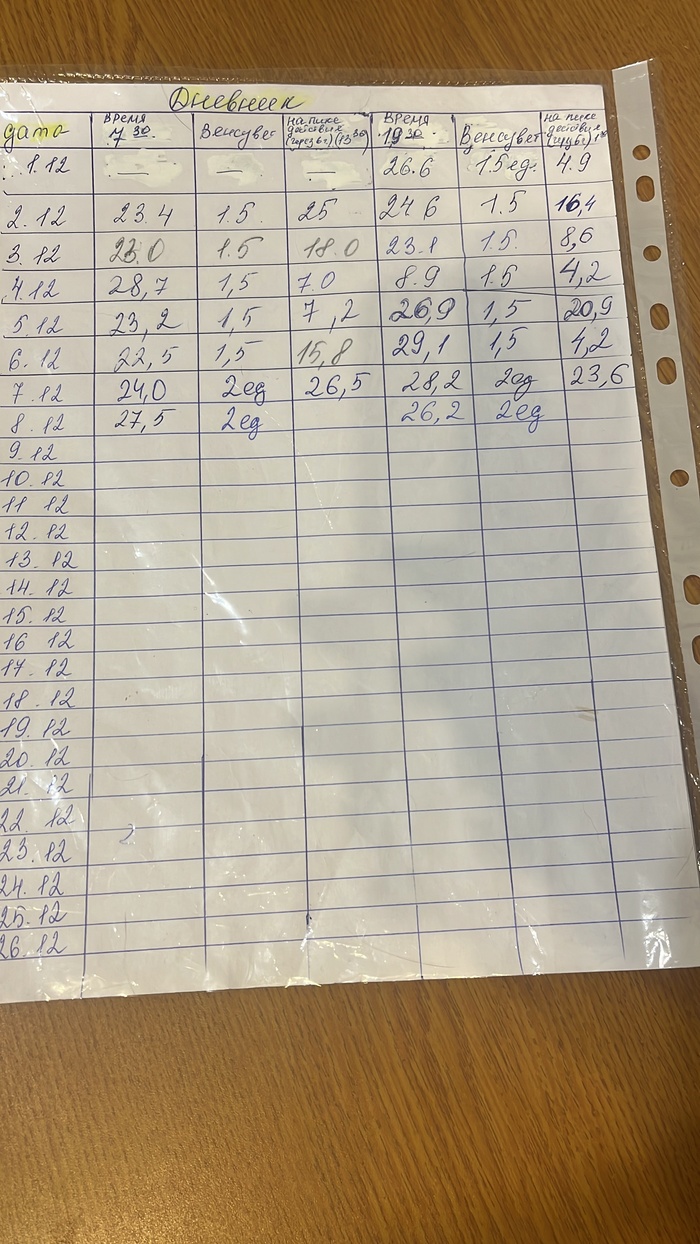 Дневник
дата Время 7 30 Венсулвет на пике действия (через 6ч) (13 30) Время 19 30 Венсулвет на пике действия
1.12 — — — 26.6 1.5ед. 4.9
2.12 23.4 1.5. 25 24.6 1.5 16,4
3.12 23.0 1.5 18.0 23.1 1.5. 8,6
4.12 28,7 1,5 7.0 8.9 1.5 4,2
5.12 23,2 1,5 7,2 26,9 1,5 20,9
6.12 22,5 1,5 15,8 29,1 1,5 4,2
7.12 24,0 2ед 26,5 28,2 2ед 23,6
8.12 27,5 2ед 26,2 2ед
9.12
10.12
11 12
12.12
13.12
14.12
15.12
16 12
17.12
18.12
19.12
20.12
21.12
22. 12
23.12 2
24.12
25.12
26.12